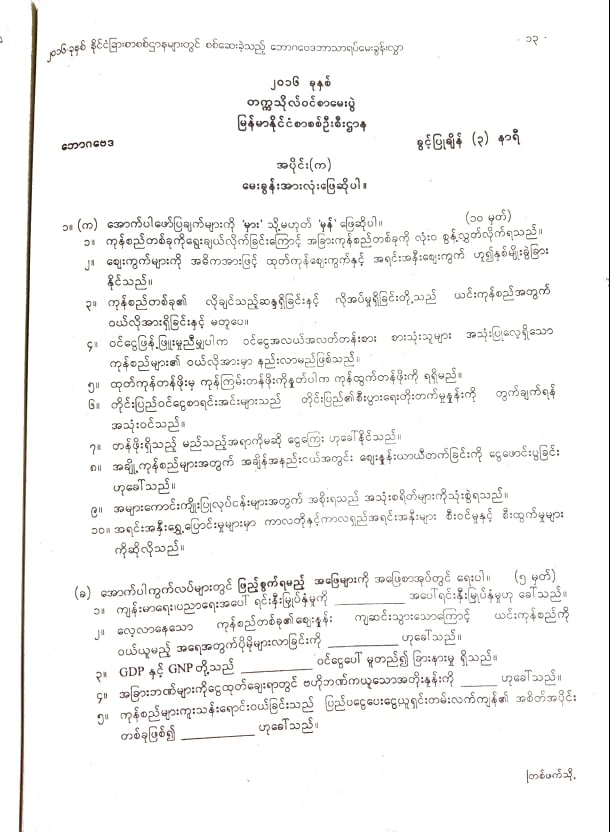 ၂၀၁၆-ခုနှစ် နိုင်ငံခြားစာစစ်ဌာနများတွင် စစ်ဆေးခဲ့သည့် ဘောဂဗေဒဘာသာရပ်မေးခွန်းလွှာ
- ၁၃ -
၂၀၁၆ ခုနှစ်
တက္ကသိုလ်ဝင်စာမေးပွဲ
မြန်မာနိုင်ငံစာစစ်ဦးစီးဌာန
ဘောဂဗေဒ ခွင့်ပြုချိန် (၃) နာရီ
အပိုင်း(က)
မေးခွန်းအားလုံးဖြေဆိုပါ။
၁။ (က) အောက်ပါဖော်ပြချက်များကို 'မှား' သို့မဟုတ် 'မှန်' ဖြေဆိုပါ။ (၁၀ မှတ်)
၁။ ကုန်စည်တစ်ခုကိုရွေးချယ်လိုက်ခြင်းကြောင့် အခြားကုန်စည်တစ်ခုကို လုံးဝ စွန့်လွှတ်လိုက်ရသည်။
၂။ ဈေးကွက်များကို အဓိကအားဖြင့် ထုတ်ကုန်ဈေးကွက်နှင့် အရင်းအနှီးဈေးကွက် ဟူ၍နှစ်မျိုးခွဲခြား
နိုင်သည်။
၃။ ကုန်စည်တစ်ခု၏ လိုချင်သည့်ဆန္ဒရှိခြင်းနှင့် လိုအပ်မှုရှိခြင်းတို့သည် ယင်းကုန်စည်အတွက်
ဝယ်လိုအားရှိခြင်းနှင့် မတူပေ။
၄။ ဝင်ငွေဖြန့်ဖြူးမှုညီမျှပါက ဝင်ငွေအလယ်အလတ်တန်းစား စားသုံးသူများ အသုံးပြုလေ့ရှိသော
ကုန်စည်များ၏ ဝယ်လိုအားမှာ နည်းလာမည်ဖြစ်သည်။
၅။ ထုတ်ကုန်တန်ဖိုးမှ ကုန်ကြမ်းတန်ဖိုးကိုနုတ်ပါက ကုန်ထွက်တန်ဖိုးကို ရရှိမည်။
၆။ တိုင်းပြည်ဝင်ငွေစာရင်းအင်းများသည် တိုင်းပြည်၏စီးပွားရေးတိုးတက်မှုနှုန်းကို တွက်ချက်ရန်
အသုံးဝင်သည်။
၇။ တန်ဖိုးရှိသည့် မည်သည့်အရာကိုမဆို ငွေကြေး ဟုခေါ်နိုင်သည်။
၈။ အချို့ကုန်စည်များအတွက် အချိန်အနည်းငယ်အတွင်း ဈေးနှုန်းယာယီတက်ခြင်းကို ငွေဖောင်းပွခြင်း
ဟုခေါ်သည်။
၉။ အများကောင်းကျိုးပြုလုပ်ငန်းများအတွက် အစိုးရသည် အသုံးစရိတ်များကိုသုံးစွဲရသည်။
၁၀။ အရင်းအနှီးရွှေ့ပြောင်းမှုများမှာ ကာလတိုနှင့်ကာလရှည်အရင်းအနှီးများ စီးဝင်မှုနှင့် စီးထွက်မှုများ
ကိုဆိုလိုသည်။
(ခ) အောက်ပါကွက်လပ်များတွင် ဖြည့်စွက်ရမည့် အဖြေများကို အဖြေစာအုပ်တွင် ရေးပါ။ (၅ မှတ်)
၁။ ကျန်းမာရေး၊ပညာရေးအပေါ် ရင်းနှီးမြှုပ်နှံမှုကို __________ အပေါ်ရင်းနှီးမြှုပ်နှံမှုဟု ခေါ်သည်။
၂။ လေ့လာနေသော ကုန်စည်တစ်ခု၏ဈေးနှုန်း ကျဆင်းသွားသောကြောင့် ယင်းကုန်စည်ကို
ဝယ်ယူမည့် အရေအတွက်ပိုမိုများလာခြင်းကို __________ ဟုခေါ်သည်။
၃။ GDP နှင့် GNP တို့သည် __________ ဝင်ငွေပေါ် မူတည်၍ ခြားနားမှု ရှိသည်။
၄။ အခြားဘဏ်များကိုငွေထုတ်ချေးရာတွင် ဗဟိုဘဏ်ကယူသောအတိုးနှုန်းကို ______ ဟုခေါ်သည်။
၅။ ကုန်စည်များကူးသန်းရောင်းဝယ်ခြင်းသည် ပြည်ပငွေပေးငွေယူရှင်းတမ်းလက်ကျန်၏ အစိတ်အပိုင်း
တစ်ခုဖြစ်၍ __________ ဟုခေါ်သည်။
|တစ်ဖက်သို့